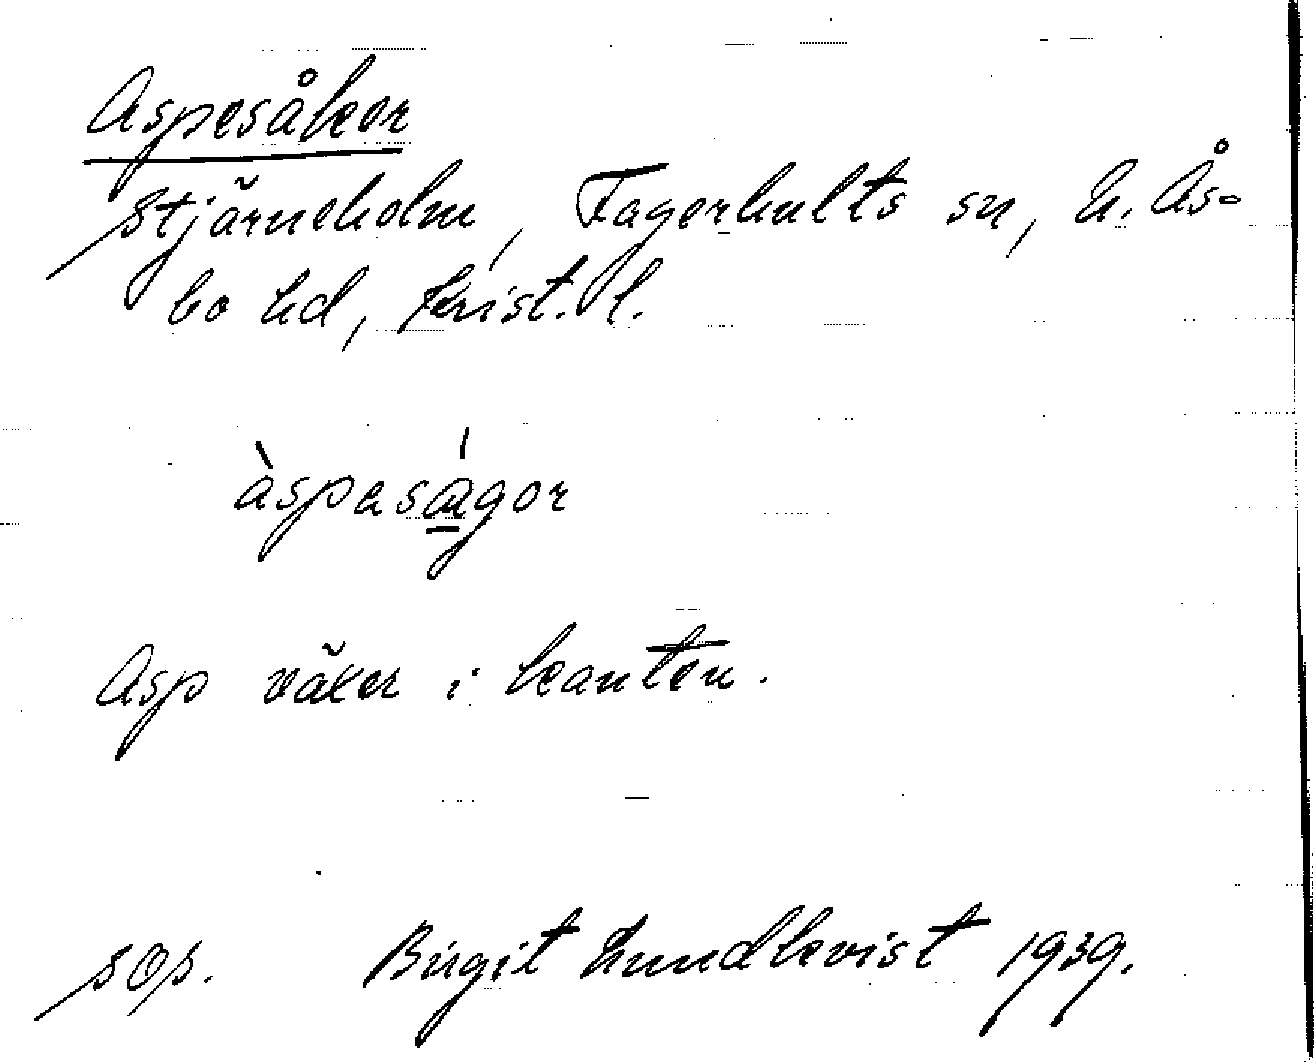 Aspesåkor
Stjärneholm, Fagerhults sn, N. Ås-
bo hd, Krist. l.
àspaságor
Asp växer i kanten.
sop. Birgit Lundkvist 1939.